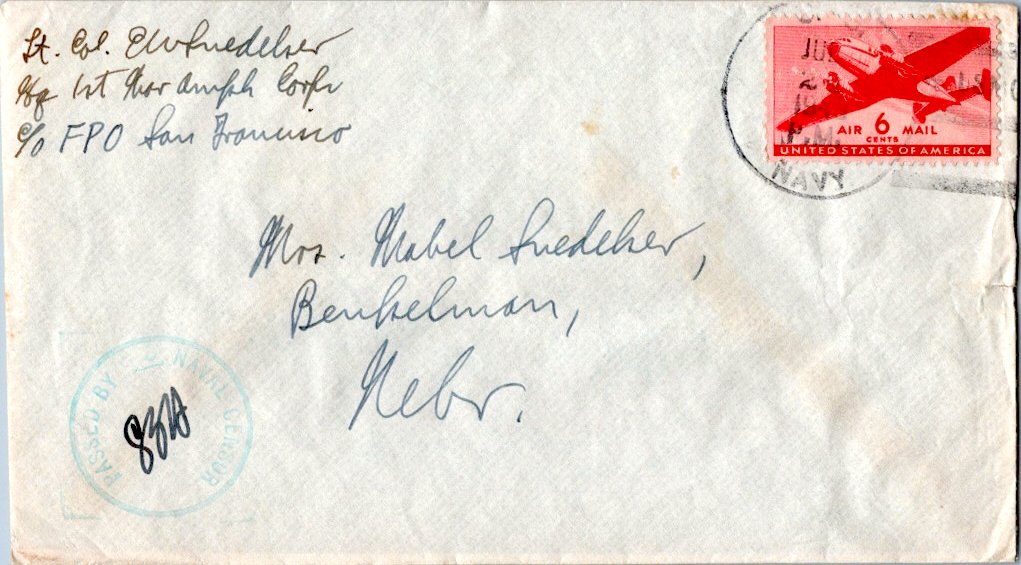 Lt. Col. EW Snedeker
Hq 1st Mar Amph Corps
c/o FPO San Francisco
JU
2
19
P.M.
NAVY
AIR 6 MAIL
CENTS
UNITED STATES OF AMERICA
Mrs. Mabel Snedeker,
Benkelman,
Nebr.
PASSED BY NAVAL CENSOR